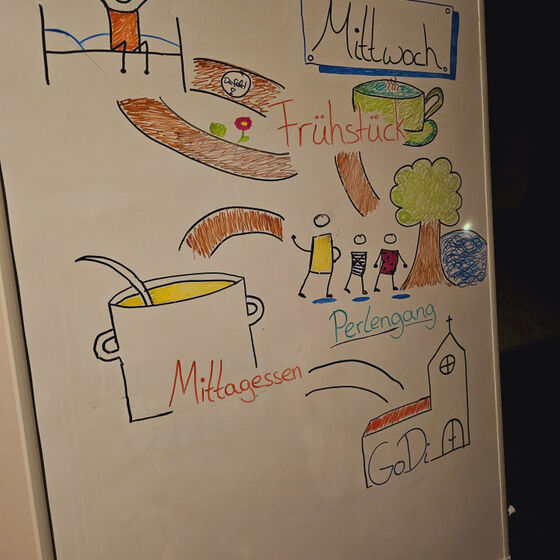 Mittwoch
Frühstück
Perlengang
Mittagessen
GoDi